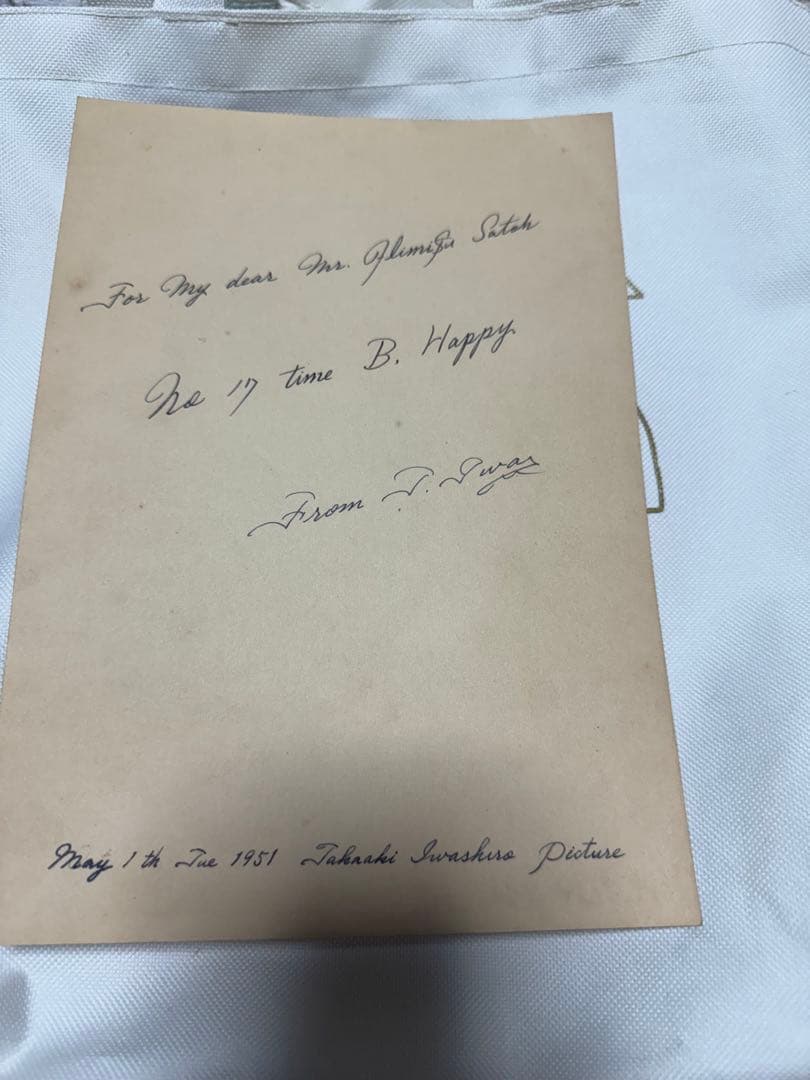 For My dear Mr. Satoh
No 17 time B. Happy.
From T.
May 1 th Tue 1951 Takaaki Iwashiro Picture